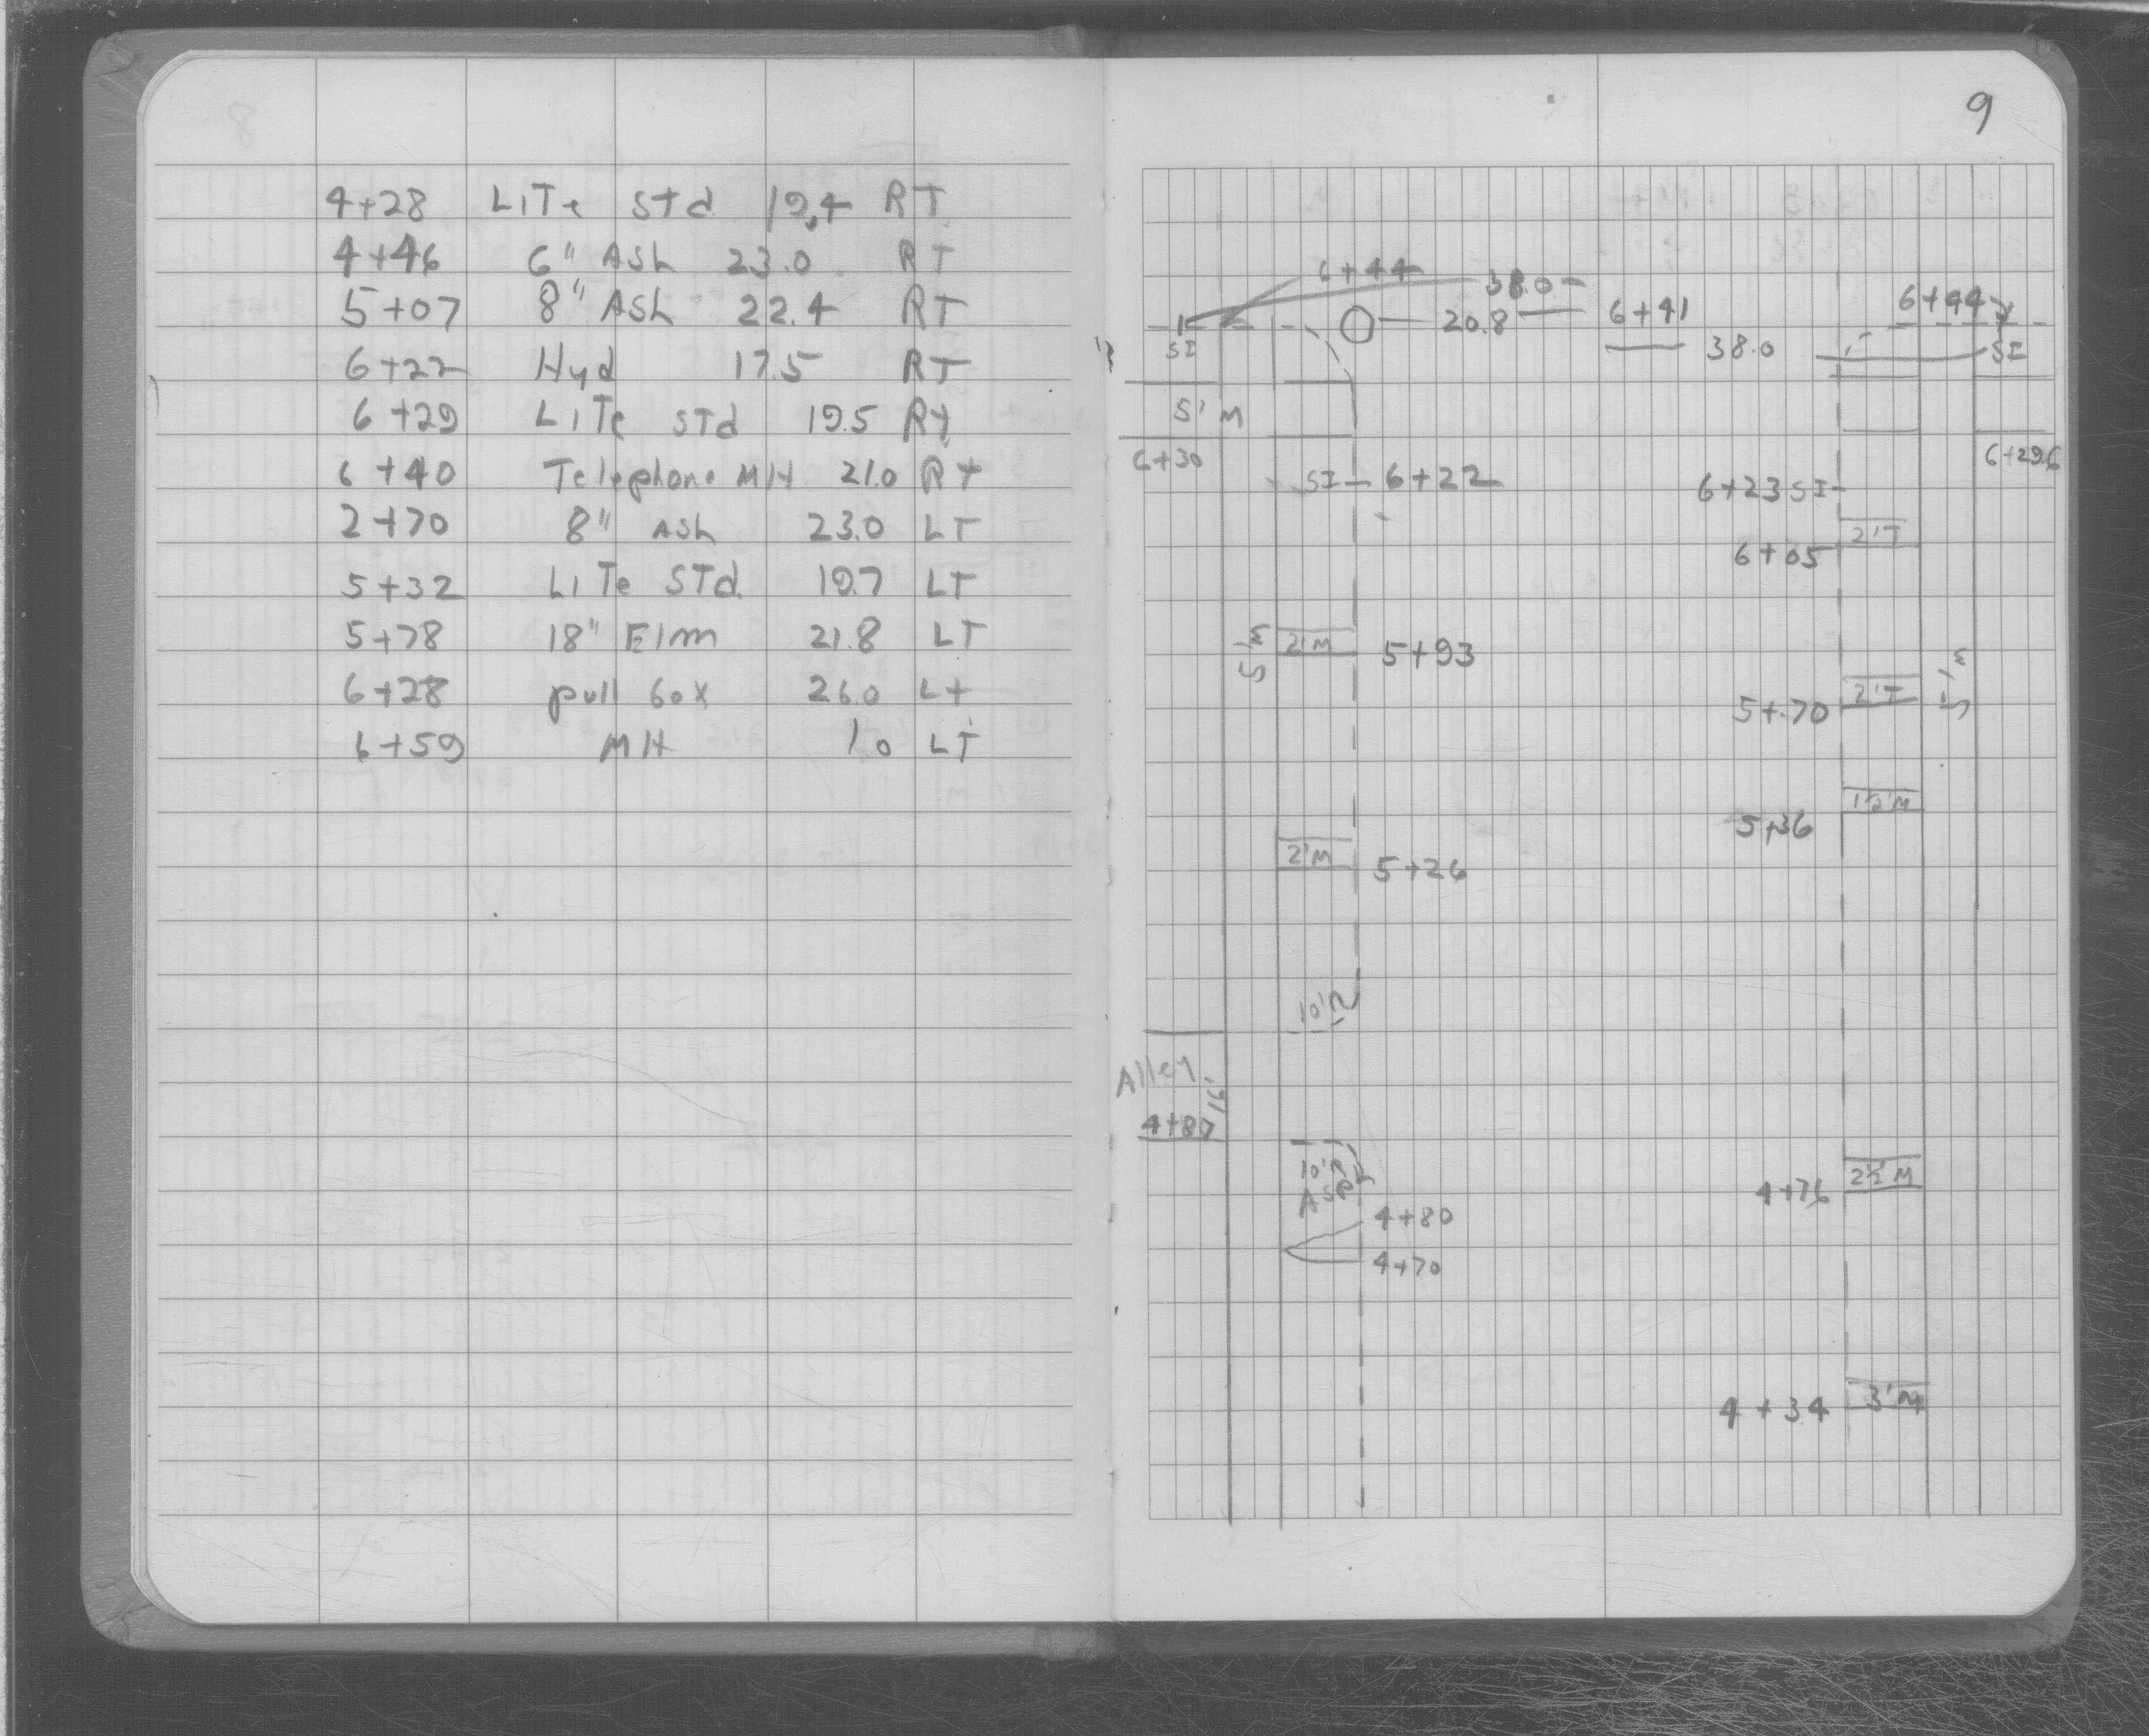 4+28 LiTe Std 19.4 RT
4+46 6" Ash 23.0 RT
5+07 8" Ash 22.4 RT
6+22 Hyd 17.5 RT
6+29 LiTe STd 19.5 RT
6+40 Telephone MH 21.0 RT
2+70 8" Ash 23.0 LT
5+32 LiTe STd. 19.7 LT
5+78 18" Elm 21.8 LT
6+28 pull box 26.0 LT
6+59 MH 1.0 LT
9
6+44 38.0
20.8 6+41
6+44
SI 38.0 SI
5' M
6+30 6+29.6
SI 6+22 6+23 SI
2'T
6+05
5'M 2'M 5+93
5+70 2'T 5'M
1½'M
5+36
2'M 5+26
10'R
Alley 16'
4+80
10'R
ASP
4+76 2½'M
4+80
4+70
4+34 3'M